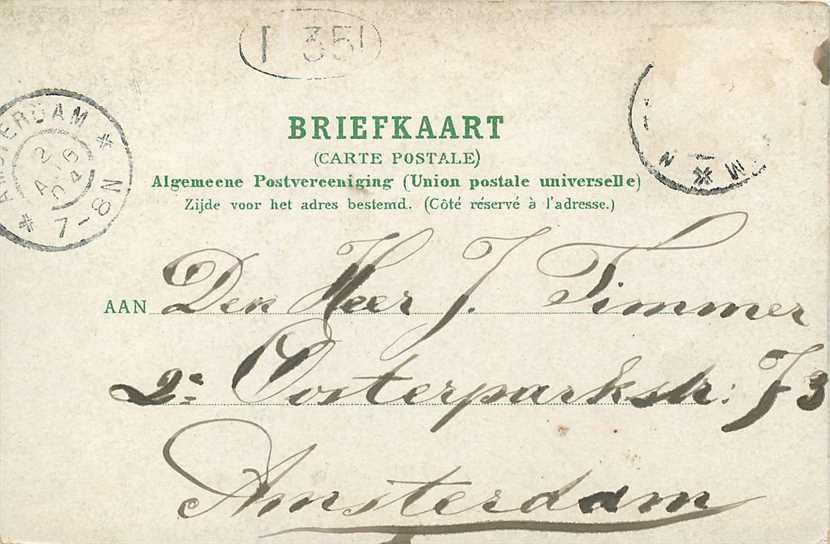 I 35I
AMSTERDAM
2
AUG
04
7-8N
BRIEFKAART
(CARTE POSTALE)
Algemeene Postvereeniging (Union postale universelle)
Zijde voor het adres bestemd. (Côté réservé à l'adresse.)
AAN Den Heer J. Timmer
2e Oosterparkstr: 73
Amsterdam